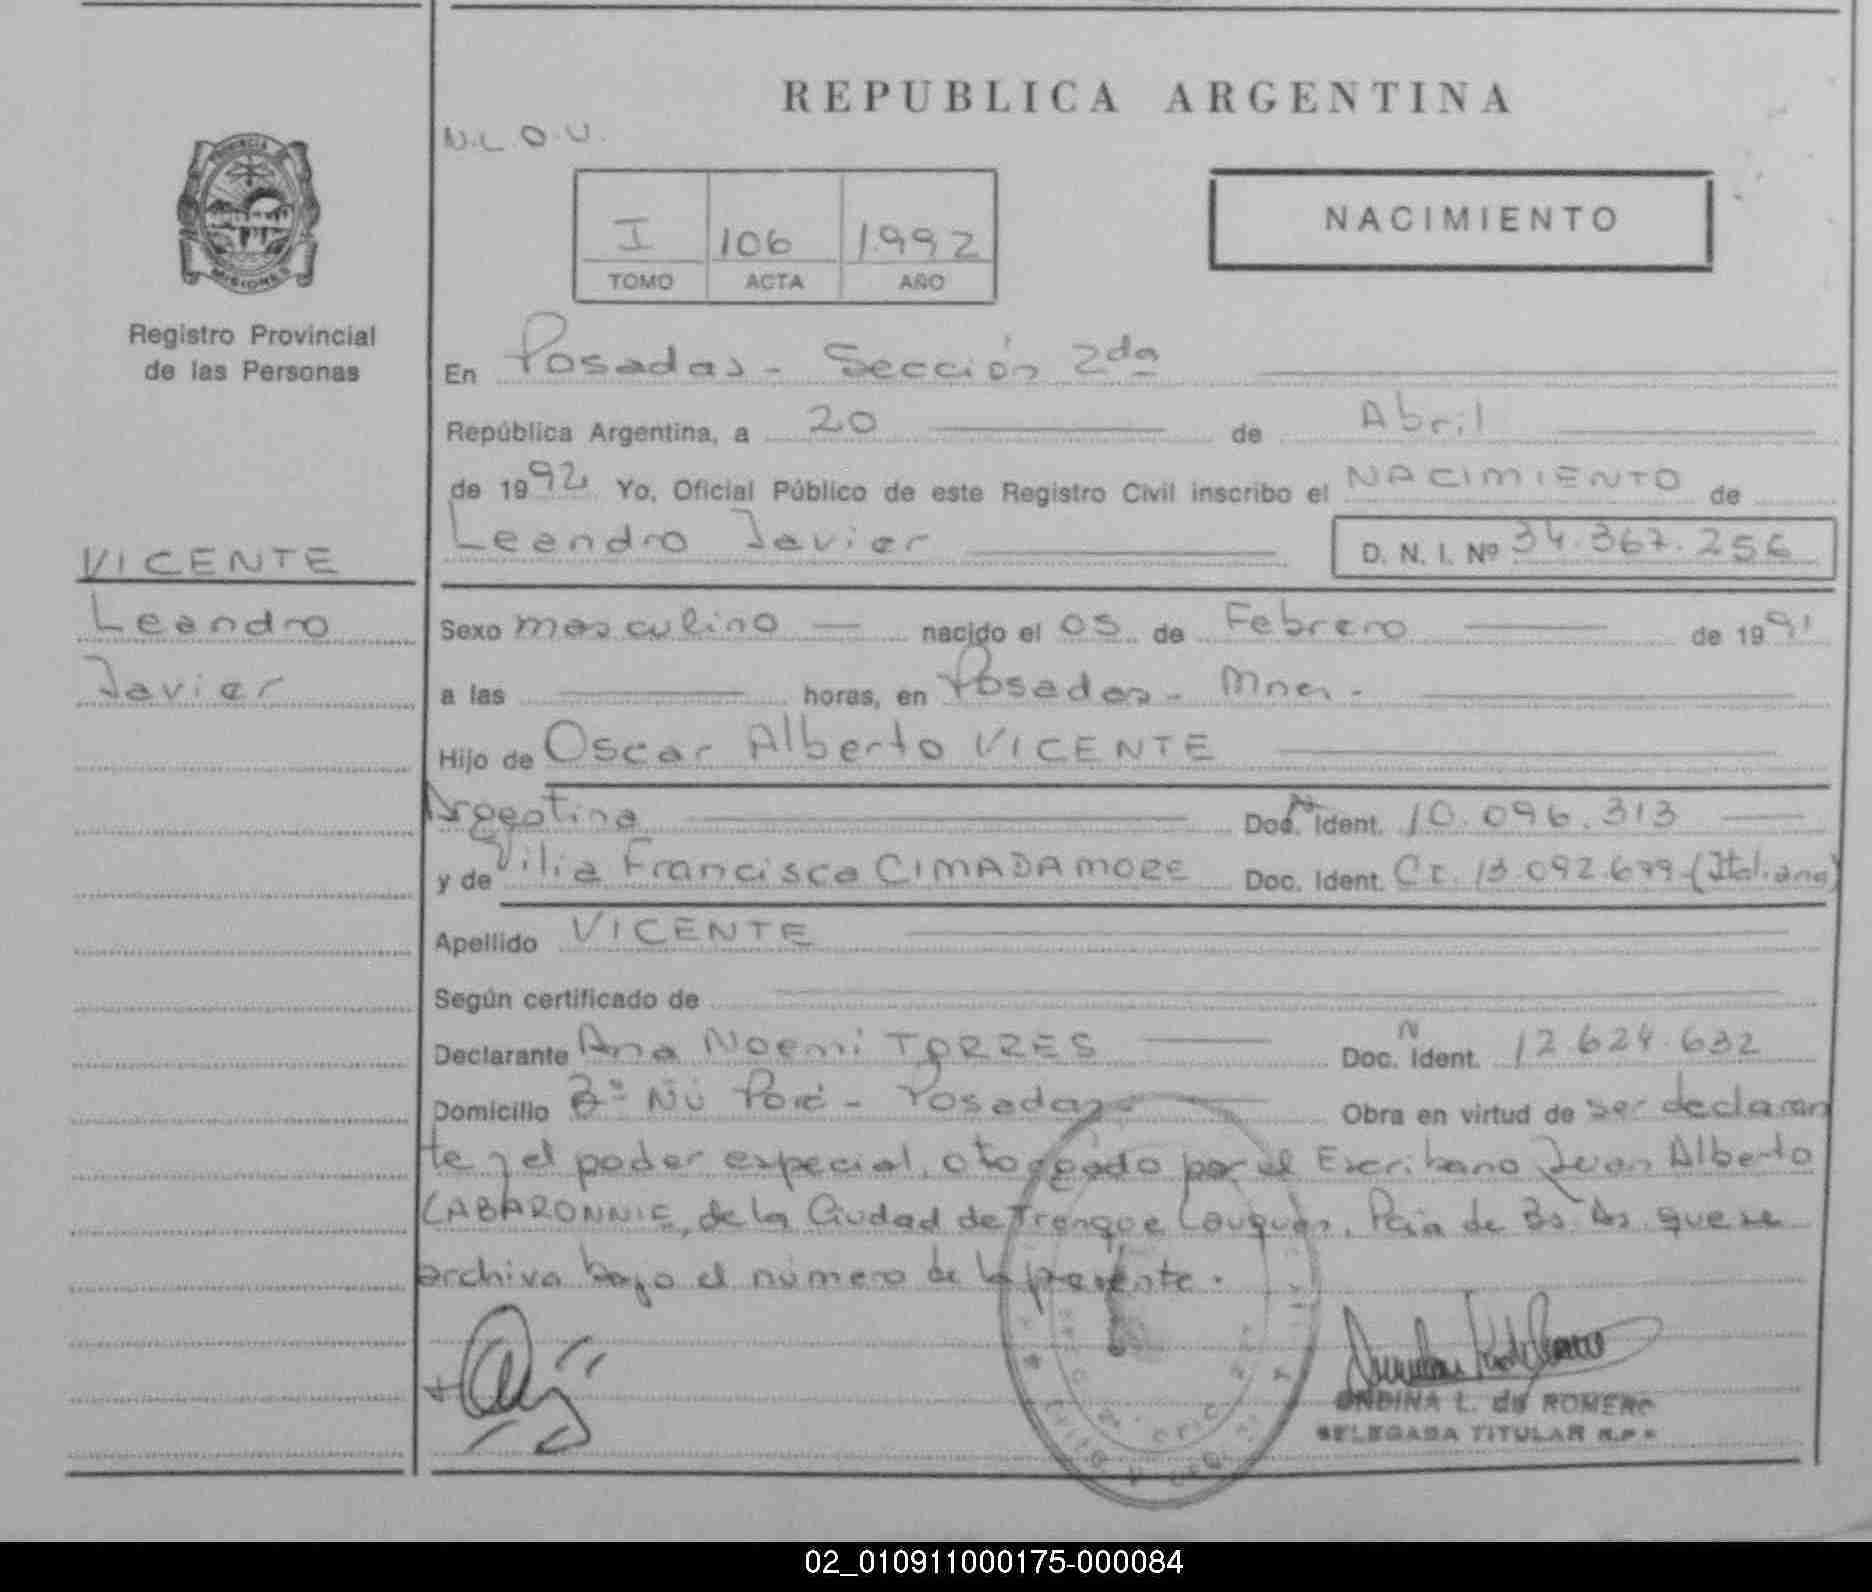 REPUBLICA ARGENTINA
N.L.O.U.
PROVINCIA
MISIONES
Registro Provincial
de las Personas
I 106 1992
TOMO ACTA AÑO
NACIMIENTO
En Posadas - Sección 2da
República Argentina, a 20 de Abril
de 1992 Yo, Oficial Público de este Registro Civil inscribo el NACIMIENTO de
Leandro Javier D. N. I. Nº 34.367.256
VICENTE
Leandro
Javier
Sexo masculino nacido el 05 de Febrero de 1991
a las horas, en Posadas - Mnes.
Hijo de Oscar Alberto VICENTE
Argentina Doc. Ident. 10.096.313
y de Vilia Francisca CIMADAMORE Doc. Ident. C.I. 13.092.679 - (Italiana)
Apellido VICENTE
Según certificado de
Declarante Ana Noemi TORRES Doc. Ident. 12.624.632
Domicilio Bº Ñú Porá - Posadas - Obra en virtud de ser declaran
te y el poder especial, otorgado por el Escribano Juan Alberto
LABARONNIE, de la Ciudad de Trenque Lauquen, Pcia de Bs. As. que se
archiva bajo el número de la presente.
ONDINA L. de ROMERO
DELEGADA TITULAR R.P.P.
02_010911000175-000084